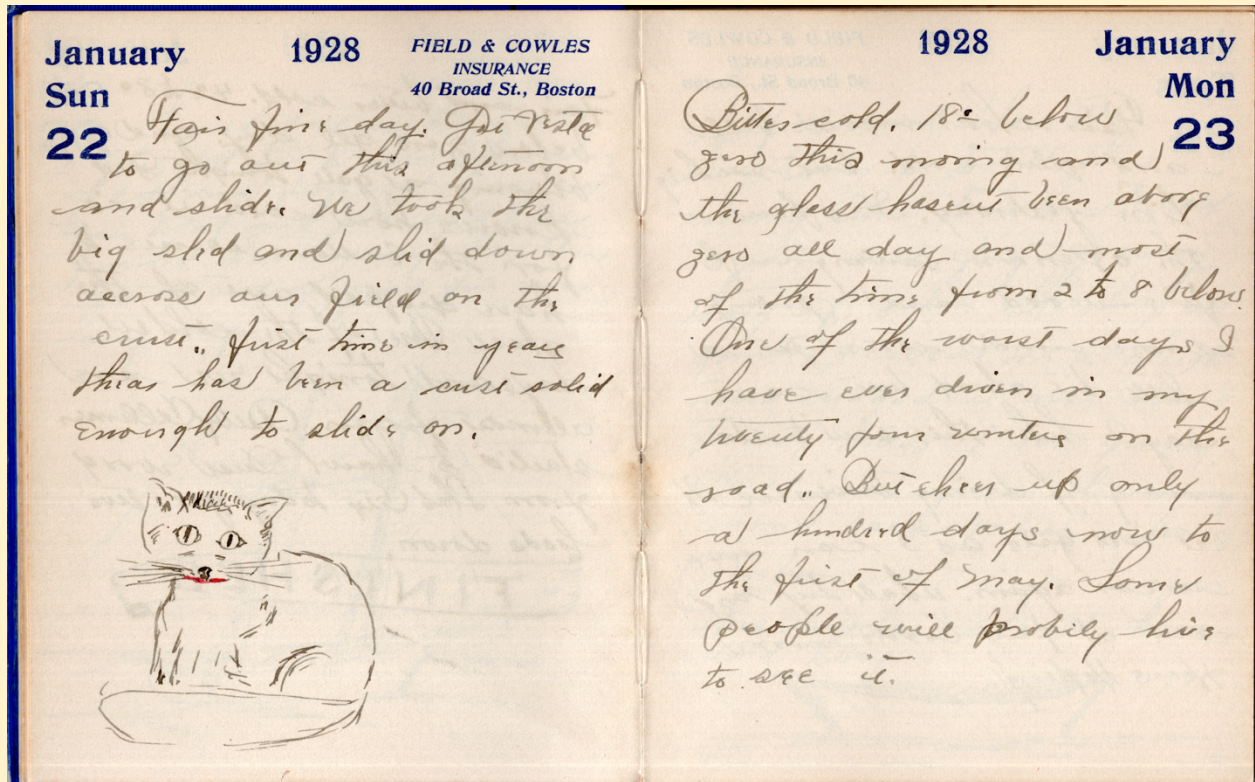 January 1928 FIELD & COWLES
INSURANCE
Sun 40 Broad St., Boston
22 Fair fine day. Got Vesta
to go out this afternoon
and slide. We took the
big sled and slid down
accross our field on the
crust.. first time in years
thear has been a crust solid
enough to slide on.
1928 January
Mon
23
Bitter cold. 18° below
zero this moring and
the glass hasent been above
zero all day and most
of the time from 2 to 8 below.
One of the worst days I
have ever driven in my
twenty four winters on the
road.. But cheer up only
a hundred days now to
the first of May. Some
people will probily live
to see it.